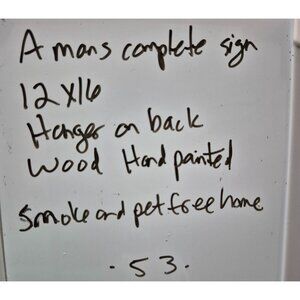 A mans complete sign
12x16
Hanger on back
Wood Hand painted
Smoke and pet free home
. 53.